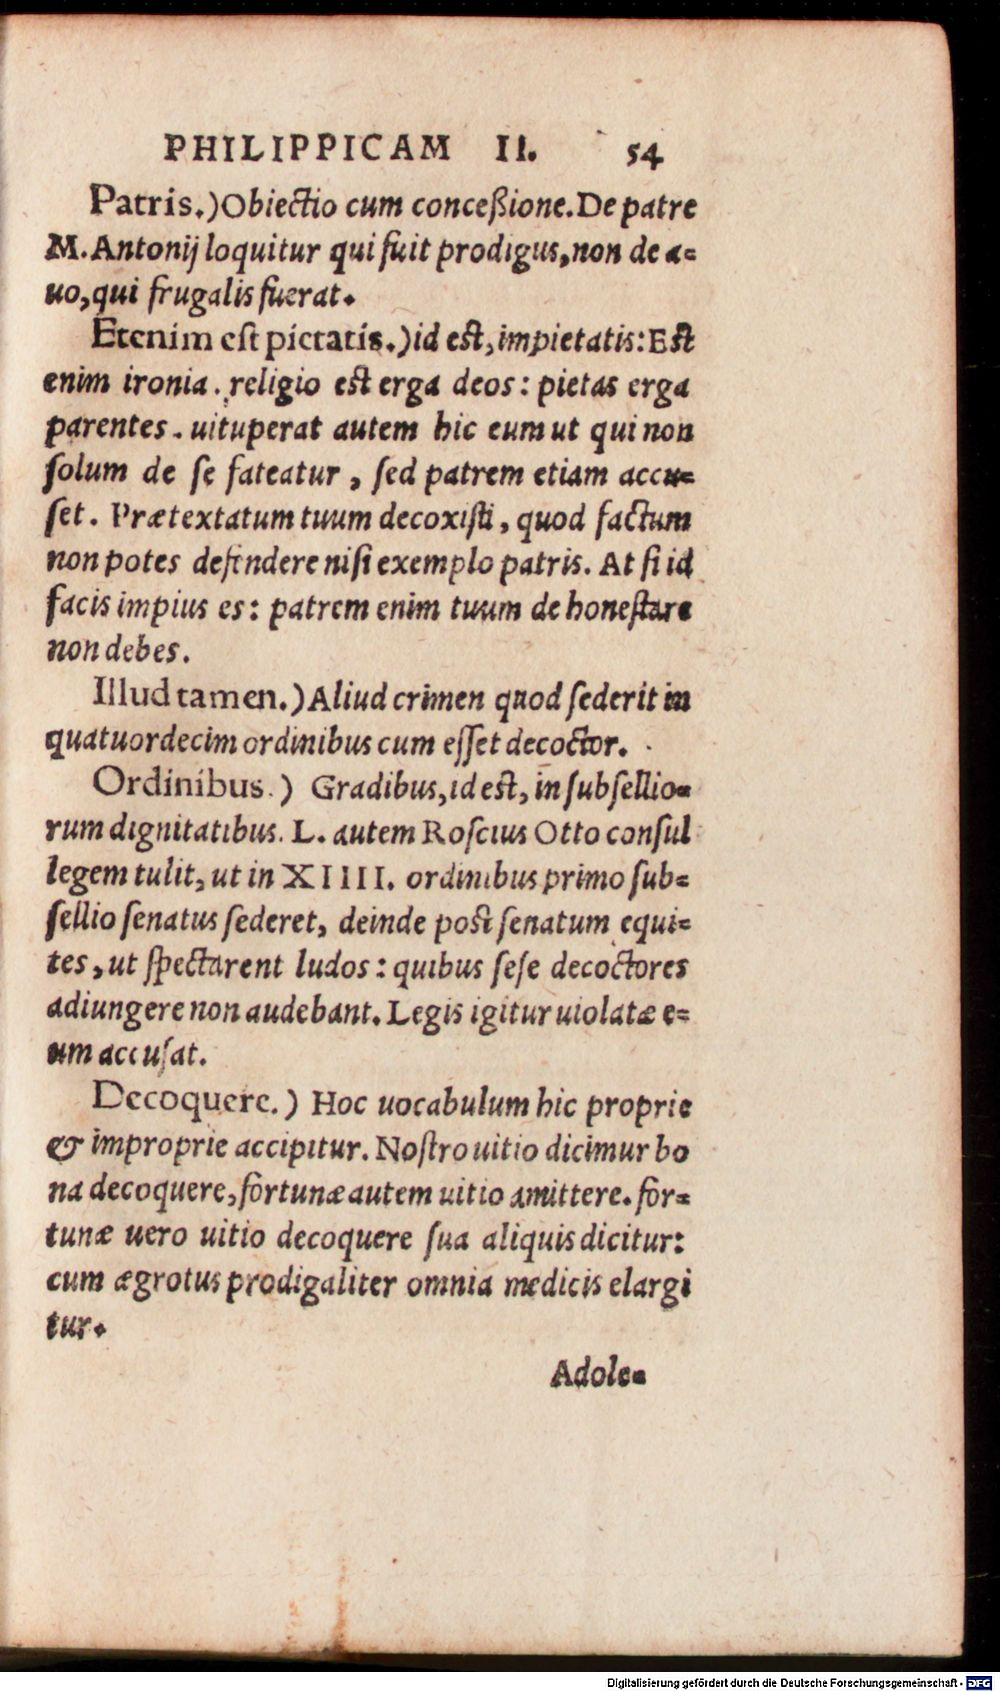 PHILIPPICAM II. 54
Patris.) Obiectio cum conceßione. De patre
M. Antonij loquitur qui fuit prodigus, non de a-
uo, qui frugalis fuerat.
Etenim est pietatis.) id est, impietatis: Est
enim ironia. religio est erga deos: pietas erga
parentes. uituperat autem hic eum ut qui non
solum de se fateatur, sed patrem etiam accu-
set. Prætextatum tuum decoxisti, quod factum
non potes defendere nisi exemplo patris. At si id
facis impius es: patrem enim tuum de honestare
non debes.
Illud tamen.) Aliud crimen quod sederit in
quatuordecim ordinibus cum esset decoctor.
Ordinibus.) Gradibus, id est, in subsellio-
rum dignitatibus. L. autem Roscius Otto consul
legem tulit, ut in XIIII. ordinibus primo sub-
sellio senatus sederet, deinde post senatum equi-
tes, ut spectarent ludos: quibus sese decoctores
adiungere non audebant. Legis igitur uiolatæ e-
um accusat.
Decoquere.) Hoc uocabulum hic proprie
& improprie accipitur. Nostro uitio dicimur bo
na decoquere, fortunæ autem uitio amittere. for-
tunæ uero uitio decoquere sua aliquis dicitur:
cum ægrotus prodigaliter omnia medicis elargi
tur.
Adole-
Digitalisierung gefördert durch die Deutsche Forschungsgemeinschaft - DFG